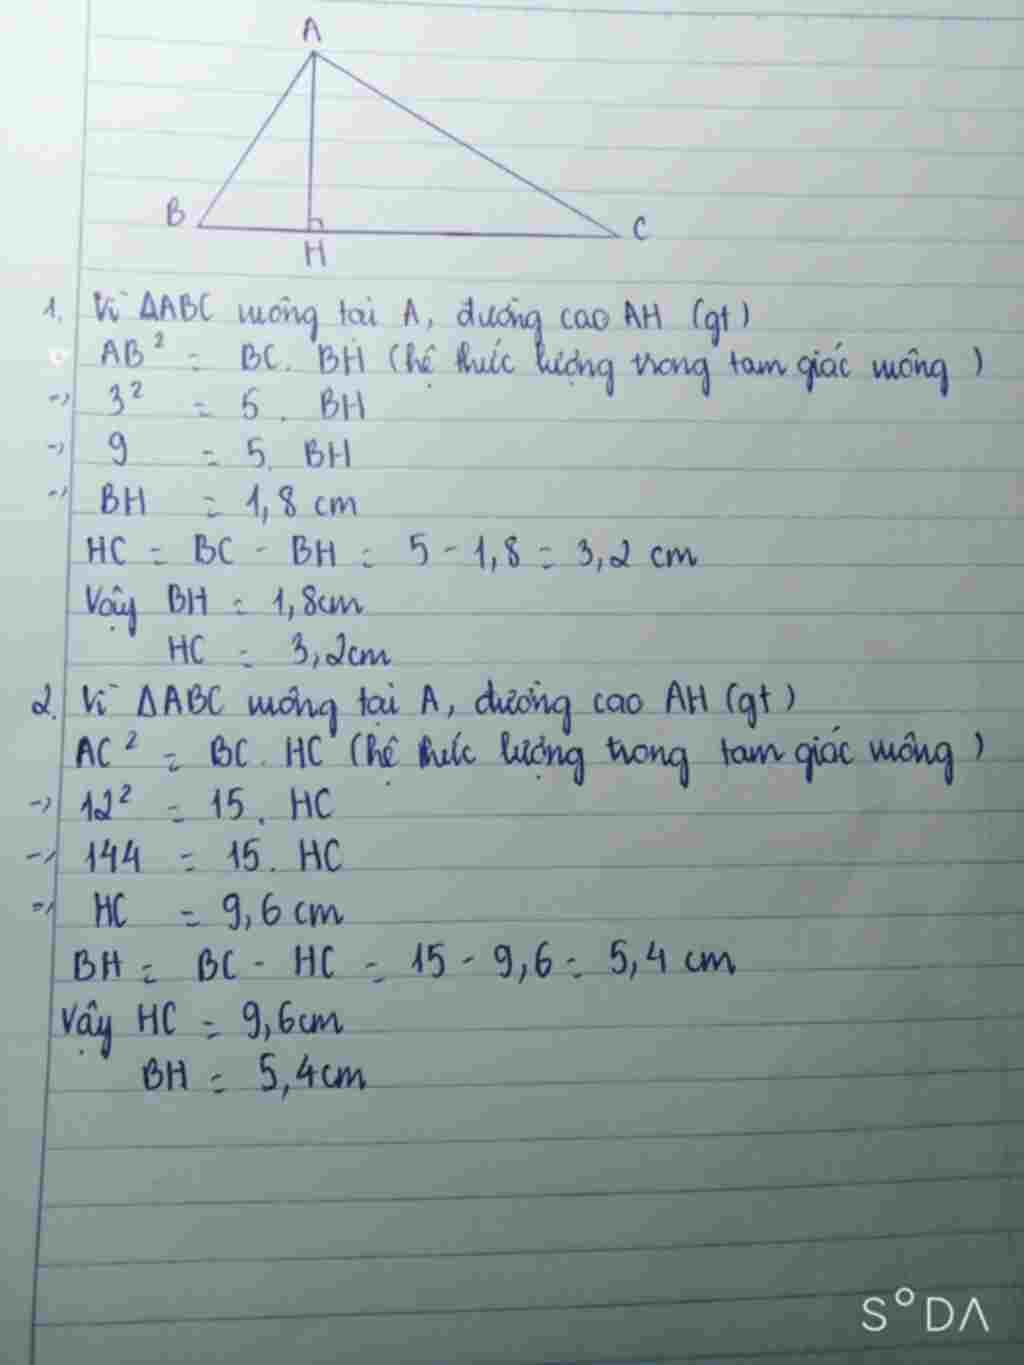 A
B
C
H
1. Vì ΔABC vuông tại A, đường cao AH (gt)
AB² = BC. BH (hệ thức lượng trong tam giác vuông)
-> 3² = 5. BH
-> 9 = 5. BH
-> BH = 1,8 cm
HC = BC - BH = 5 - 1,8 = 3,2 cm
Vậy BH = 1,8cm
HC = 3,2cm
2. Vì ΔABC vuông tại A, đường cao AH (gt)
AC² = BC. HC (hệ thức lượng trong tam giác vuông)
-> 12² = 15. HC
-> 144 = 15. HC
=> HC = 9,6 cm
BH = BC - HC = 15 - 9,6 = 5,4 cm
Vậy HC = 9,6cm
BH = 5,4cm
SODA